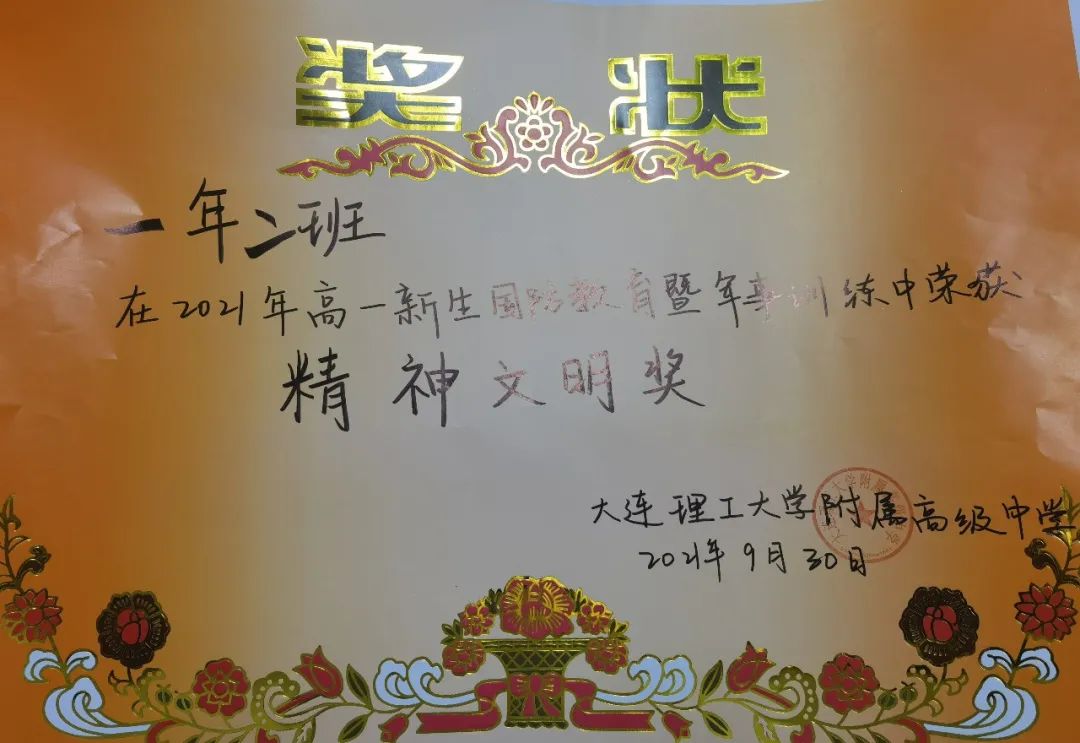 奖状
一年二班
在2021年高一新生国防教育暨军事训练中荣获
精神文明奖
大连理工大学附属高级中学
2021年9月30日